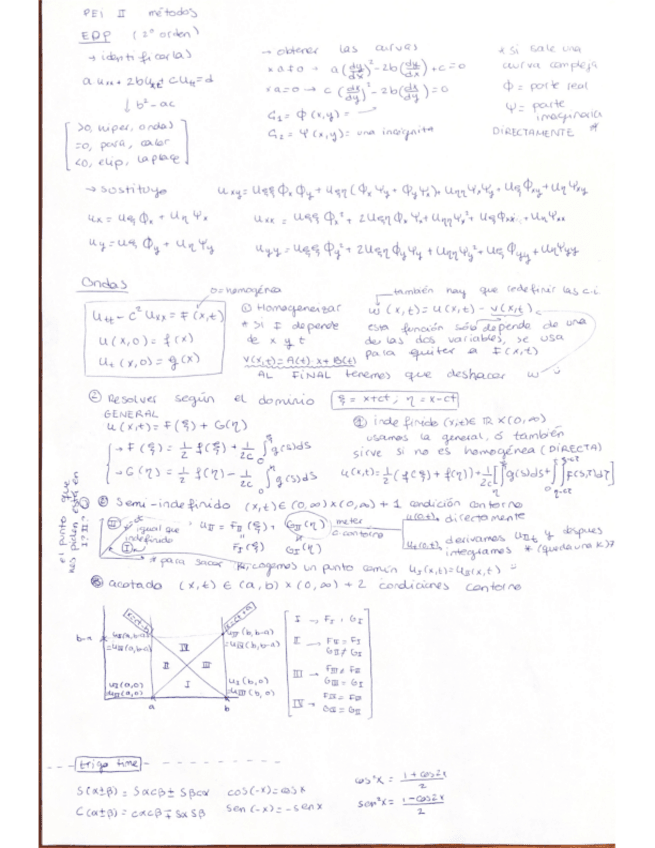 PEi II métodos
EDP (2º orden)
→ identificarlas
a uxx + 2b uxt + c utt = d
↓ b² - ac
>0, hiper, ondas
=0, para, calor
<0, elip, laplace
→ obtener las curvas
* a≠0 → a(dy/dx)² - 2b(dy/dx) + c = 0
* a=0 → c(dx/dy)² - 2b(dx/dy) = 0
C₁ = Φ(x,y) =
C₂ = Ψ(x,y) = una incógnita
* si sale una
curva compleja
Φ = parte real
Ψ = parte
imaginaria
DIRECTAMENTE *
→ sustituyo
uxy = uξξ Φx Φy + uξη (Φx Ψy + Φy Ψx) + uηη Ψx Ψy + uξ Φxy + uη Ψxy
ux = uξ Φx + uη Ψx
uxx = uξξ Φx² + 2uξη Φx Ψx + uηη Ψx² + uξ Φxx + uη Ψxx
uy = uξ Φy + uη Ψy
uyy = uξξ Φy² + 2uξη Φy Ψy + uηη Ψy² + uξ Φyy + uη Ψyy
Ondas
0 = homogénea
utt - c² uxx = F(x,t)
u(x,0) = f(x)
ut(x,0) = g(x)
① Homogeneizar
* si F depende
de x y t
v(x,t) = A(t)·x + B(t)
también hay que redefinir las c.i
w(x,t) = u(x,t) - v(x,t)
esta función sólo depende de una
de las dos variables, se usa
para quitar a F(x,t)
AL FINAL tenemos que deshacer w
② Resolver según el dominio
ξ = x+ct ; η = x-ct
GENERAL
u(x,t) = F(ξ) + G(η)
→ F(ξ) = 1/2 f(ξ) + 1/2c ∫₀^ξ g(s)ds
→ G(η) = 1/2 f(η) - 1/2c ∫₀^η g(s)ds
① indefinido (x,t) ∈ ℝ × (0,∞)
usamos la general, ó también
sirve si no es homogénea (DIRECTA)
u(x,t) = 1/2 (f(ξ) + f(η)) + 1/2c [∫ g(s)ds + ∫∫ F(s,τ)dτ]
el punto que
nos piden está en
I? II?
② Semi-indefinido (x,t) ∈ (0,∞) × (0,∞) + 1 condición contorno
II
I
igual que
indefinido
uII = FII(ξ) + GII(η)
FI(ξ) GI(η)
meter
c. contorno
u(0,t) → directamente
ux(0,t) → derivamos uII y después
integramos * (queda una K)?
* para sacar K, cogemos un punto común uI(x,t) = uII(x,t)
③ acotado (x,t) ∈ (a,b) × (0,∞) + 2 condiciones contorno
b-a
uII(a,b-a)
= uIV(a,b-a)
uI(a,0)
uII(a,0)
IV
II
III
I
a
b
uIV(b,b-a)
= uIII(b,b-a)
uI(b,0)
= uIII(b,0)
I → FI , GI
II → FII = FI
GII ≠ GI
III → FIII ≠ FI
GIII = GI
IV → FIV = FIII
GIV = GII
trigo time
S(α±β) = SαCβ ± SβCα
cos(-x) = cos x
C(α±β) = CαCβ ∓ SαSβ
sen(-x) = -sen x
cos²x = 1+cos2x / 2
sen²x = 1-cos2x / 2